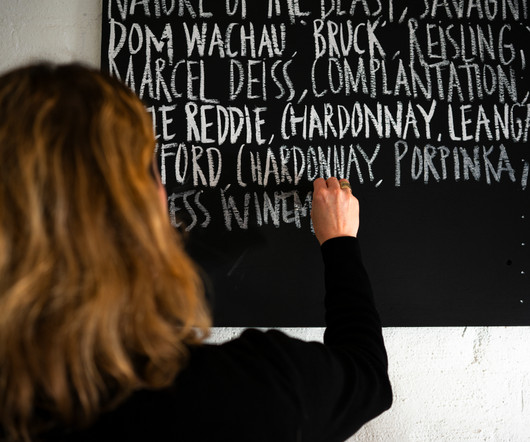 NATURE OF THE BEAST, SAVAGNI
DOM WACHAU, BRUCK, REISLING,
MARCEL DEISS, COMPLANTATION,
IE REDDIE, CHARDONNAY, LEANGA
FORD, CHARDONNAY, PORPINKA,
ESS WINEM